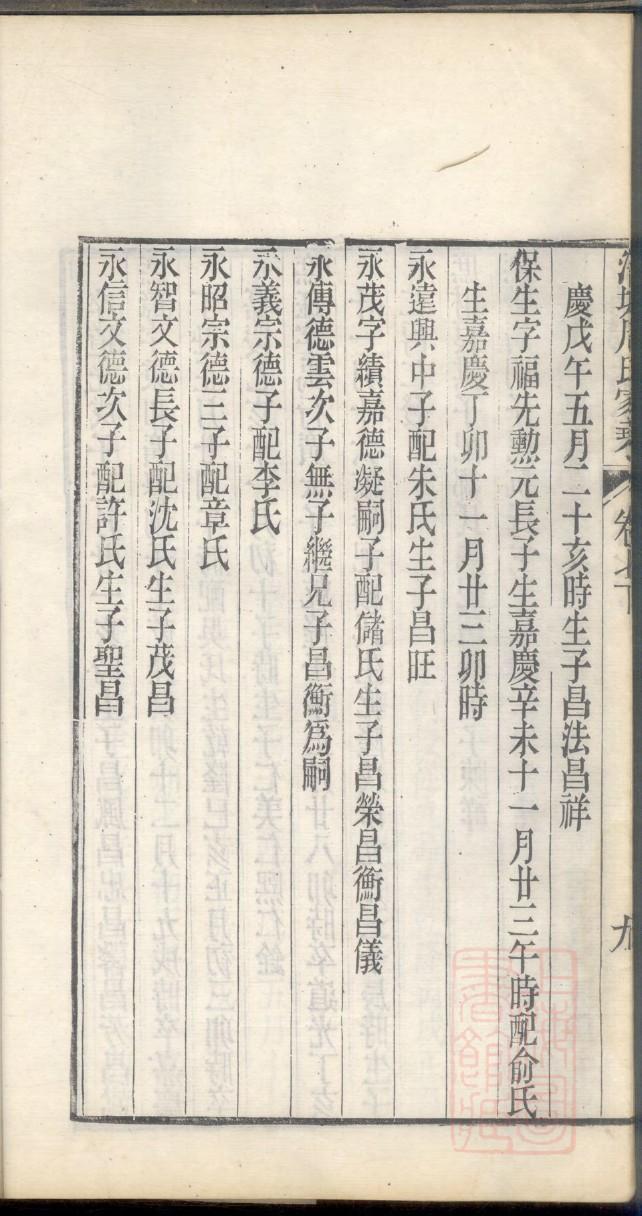 周氏家乘 卷七下 九
慶戊午五月二十亥時生子昌法昌祥
保生字福先勲元長子生嘉慶辛未十一月廿三午時配俞氏
生嘉慶丁卯十一月廿三卯時
永遠興中子配朱氏生子昌旺
永茂字績嘉德凝嗣子配儲氏生子昌榮昌衡昌儀
永傳德雲次子無子繼兄子昌衡爲嗣
永義宗德子配李氏
永昭宗德三子配章氏
永智文德長子配沈氏生子茂昌
永信文德次子配許氏生子聖昌